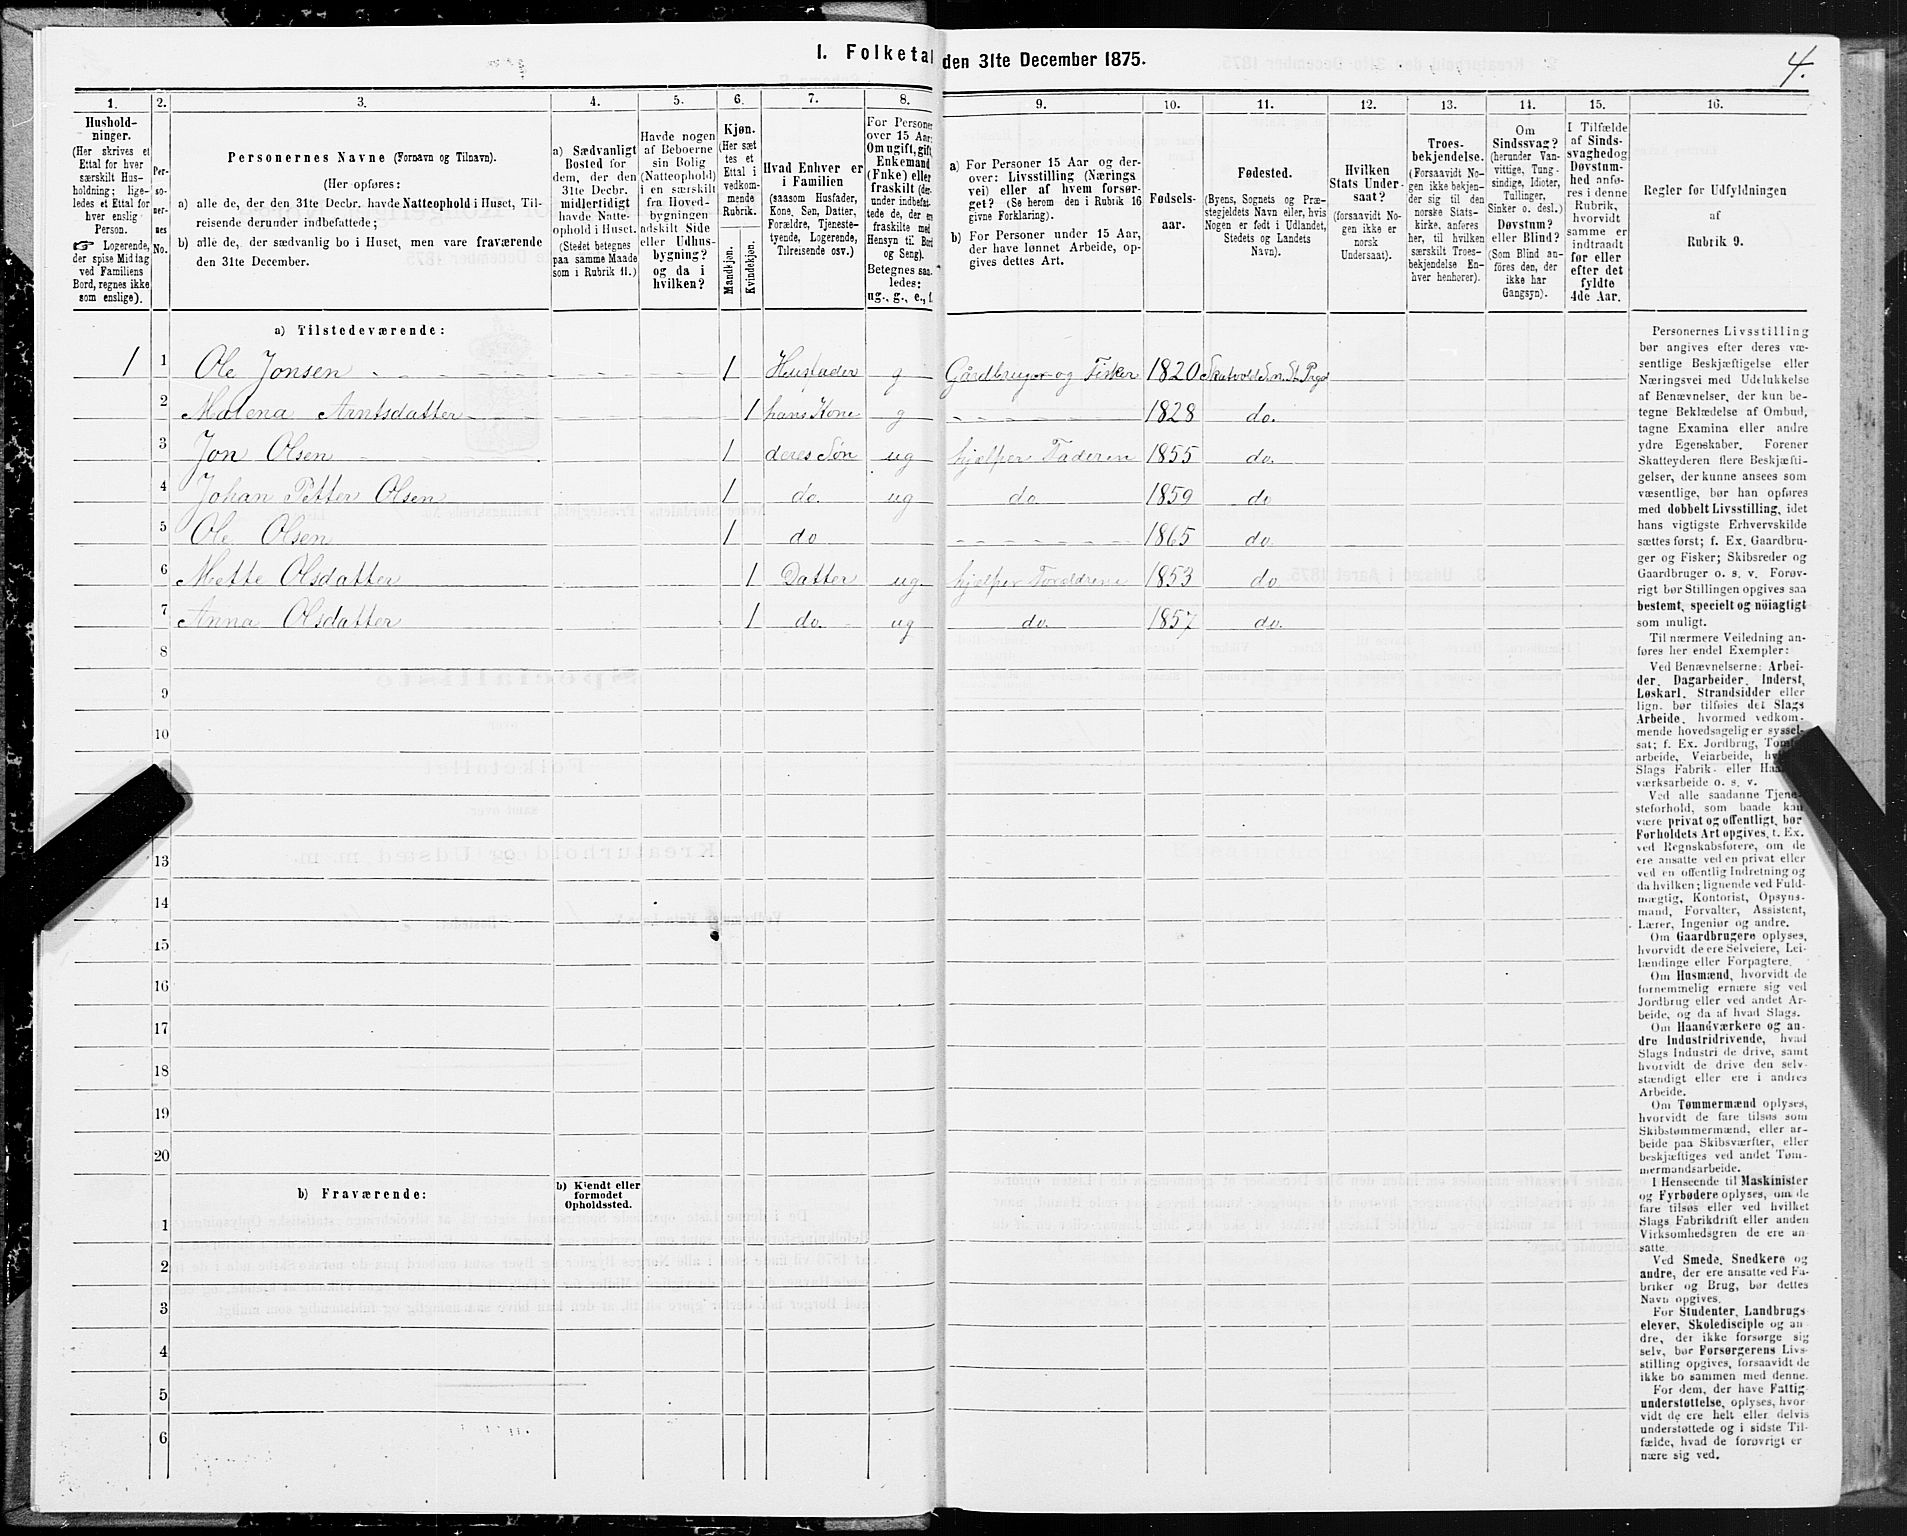 I. Folketal den 31te December 1875.
4.
1.
Hushold-
ninger.
(Her skrives et
Ettal for hver
særskilt Hus-
holdning; lige-
ledes et Ettal for
hver enslig
Person.
☞ Logerende,
der spise Middag
ved Familiens
Bord, regnes ikke
som enslige).
2.
Per-
so-
ner-
nes
No.
3.
Personernes Navne (Fornavn og Tilnavn).
(Her opføres:
a) alle de, der den 31te Decbr. havde Natteophold i Huset, Til-
reisende derunder indbefattede;
b) alle de, der sædvanlig bo i Huset, men vare fraværende
den 31te December.
4.
a) Sædvanligt
Bosted for
dem, der den
31te Decbr.
midlertidigt
havde Natte-
ophold i Huset.
(Stedet betegnes
paa samme Maade
som i Rubrik 11.)
5.
Havde nogen
af Beboerne
sin Bolig
(Natteophold)
i en særskilt
fra Hoved-
bygningen
adskilt Side
eller Udhus-
bygning?
og da i
hvilken?
6.
Kjøn.
(Her sæt
tes et
Ettal i
vedkom-
mende
Rubrik.
Mandkjøn.
Kvindekjøn.
7.
Hvad Enhver er
i Familien
(saasom Husfader,
Kone, Søn, Datter,
Forældre, Tjeneste-
tyende, Logerende,
Tilreisende osv.)
8.
For Personer
over 15 Aar:
Om ugift, gift,
Enkemand
(Enke) eller
fraskilt (der-
under indbefat-
tede de, der er
fraskilte med
Hensyn til Bord
og Seng).
Betegnes saa-
ledes:
ug., g., e., f.
9.
a) For Personer 15 Aar og der-
over: Livsstilling (Nærings
vei) eller af hvem forsør-
get? (Se herom den i Rubrik 16
givne Forklaring).
b) For Personer under 15 Aar,
der have lønnet Arbeide, op-
gives dettes Art.
10.
Fødsels-
aar.
11.
Fødested.
(Byens, Sognets og Præ-
stegjeldets Navn eller, hvis
Nogen er født i Udlandet,
Stedets og Landets
Navn).
12.
Hvilken
Stats Under-
saat?
(forsaavidt No-
gen ikke er
norsk
Undersaat).
13.
Troes-
bekjendelse.
(Forsaavidt No-
gen ikke bekjen-
der sig til den
norske Stats-
kirke, anføres
her, til hvilken
særskilt Troes-
bekjendelse En-
hver henhører).
14.
Om
Sindssvag?
(herunder Van-
vittige, Tung-
sindige, Idioter,
Tullinger,
Sinker o. desl.)
Døvstum?
eller Blind?
(Som Blind an-
føres den, der
ikke har
Gangsyn).
15.
I Tilfælde
af Sinds-
svaghed og
Døvstum-
hed anfø-
res i denne
Rubrik,
hvorvidt
samme er
indtraadt
før eller
efter det
fyldte
4de Aar.
16.
Regler for Udfyldningen
af
Rubrik 9.
a) Tilstedeværende:
1 1 Ole Jonsen 1 Husfader g Gårdbruger og Fisker 1820
2 Malena Arntsdatter 1 hans Kone g 1828 do.
3 Jon Olsen 1 deres Søn ug hjælper Faderen 1855 do.
4 Johan Petter Olsen 1 do. ug do 1859 do
5 Ole Olsen 1 do 1865 do.
6 Mette Olsdatter 1 Datter ug hjælper Foreldrene 1853 do
7 Anna Olsdatter 1 do. ug do. 1857 do.
8
9
10
13
14
15
16
17
18
19
20
b) Fraværende:
b) Kjendt eller
formodet
Opholdssted.
1
2
3
4
5
6
Personernes Livsstilling
bør angives efter deres væ-
sentlige Beskjæftigelse eller
Næringsvei med Udelukkelse
af Benævnelser, der kun be-
tegne Beklædelse af Ombud,
tagne Examina eller andre
ydre Egenskaber. Forener
Skatteyderen flere Beskjæfti-
gelser, der kunne ansees som
væsentlige, bør han opføres
med dobbelt Livsstilling, idet
hans vigtigste Erhvervskilde
sættes først; f. Ex. Gaardbru-
ger og Fisker; Skibsreder og
Gaardbruger o. s. v. Forøv-
rigt bør Stillingen opgives saa
bestemt, specielt og nöiagtigt
som muligt.
Til nærmere Veiledning an-
føres her endel Exempler:
Ved Benævnelserne: Arbei-
der, Dagarbeider, Inderst,
Løskarl, Strandsidder eller
lign. bør tilføies det Slags
Arbeide, hvormed vedkom-
mende hovedsagelig er syssel-
sat; f. Ex. Jordbrug,
arbeide, Veiarbeide,
Slags Fabrik- eller
værksarbeide o. s. v.
Ved alle saadanne Tjene-
steforhold, som baade kan
være privat og offentligt, bør
Forholdets Art opgives, t. Ex.
ved Regnskabsførere, om de
ere ansatte ved en privat eller
ved en offentlig Indretning og
da hvilken; lignende ved Fuld-
mægtig, Kontorist, Opsyns-
mand, Forvalter, Assistent,
Lærer, Ingeniør og andre.
Om Gaardbrugere oplyses,
hvorvidt de ere Selveiere, Lei-
lændinge eller Forpagtere.
Om Husmænd, hvorvidt de
fornemmelig ernære sig ved
Jordbrug eller ved andet Ar-
beide, og da af hvad Slags.
Om Haandværkere og an-
dre Industridrivende, hvad
Slags Industri de drive, samt
hvorvidt de drive den selv-
stændigt eller ere i andres
Arbeide.
Om Tømmermænd oplyses,
hvorvidt de fare tilsøs som
Skibstømmermænd, eller ar-
beide paa Skibsværfter, eller
beskjæftiges ved andet Tøm-
mermandsarbeide.
I Henseende til Maskinister
og Fyrbødere oplyses, om de
fare tilsøs eller ved hvilket
Slags Fabrikdrift eller anden
Virksomhedsgren de ere an-
satte.
Ved Smede, Snedkere og
andre, der ere ansatte ved Fa-
briker og Brug, bør dettes
Navn opgives.
For Studenter, Landbrugs
elever, Skoledisciple og an
dre, der ikke forsørge sig
selv, bør Forsørgerens Livs-
stilling opgives, forsaavidt de
ikke bo sammen med denne.
For dem, der have Fattig
understøttelse, oplyses, hvor-
vidt de ere helt eller delvis
understøttede og i sidste Til-
fælde, hvad de forøvrigt er
nære sig ved.